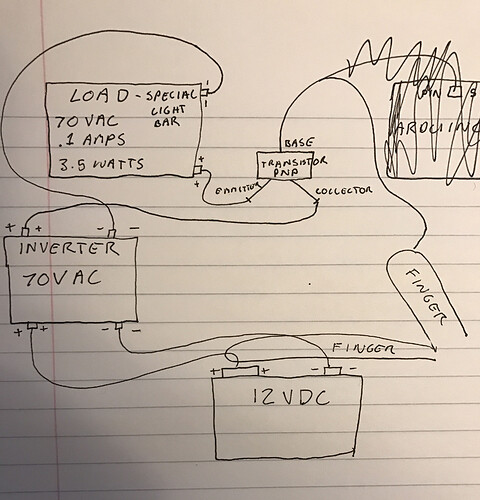 LOAD - SPECIAL
LIGHT
BAR
70 VAC
.1 AMPS
3.5 WATTS
-
+
+
BASE
TRANSISTOR
PNP
COLLECTOR
PIN
ARDUINO
+ + - -
INVERTER
70VAC
+ + - -
FINGER
FINGER
+ + - -
12VDC